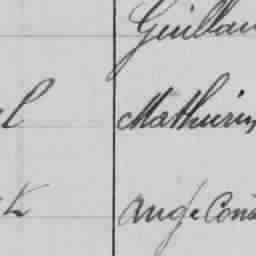 Guillau
Mathurin
Ange Cons